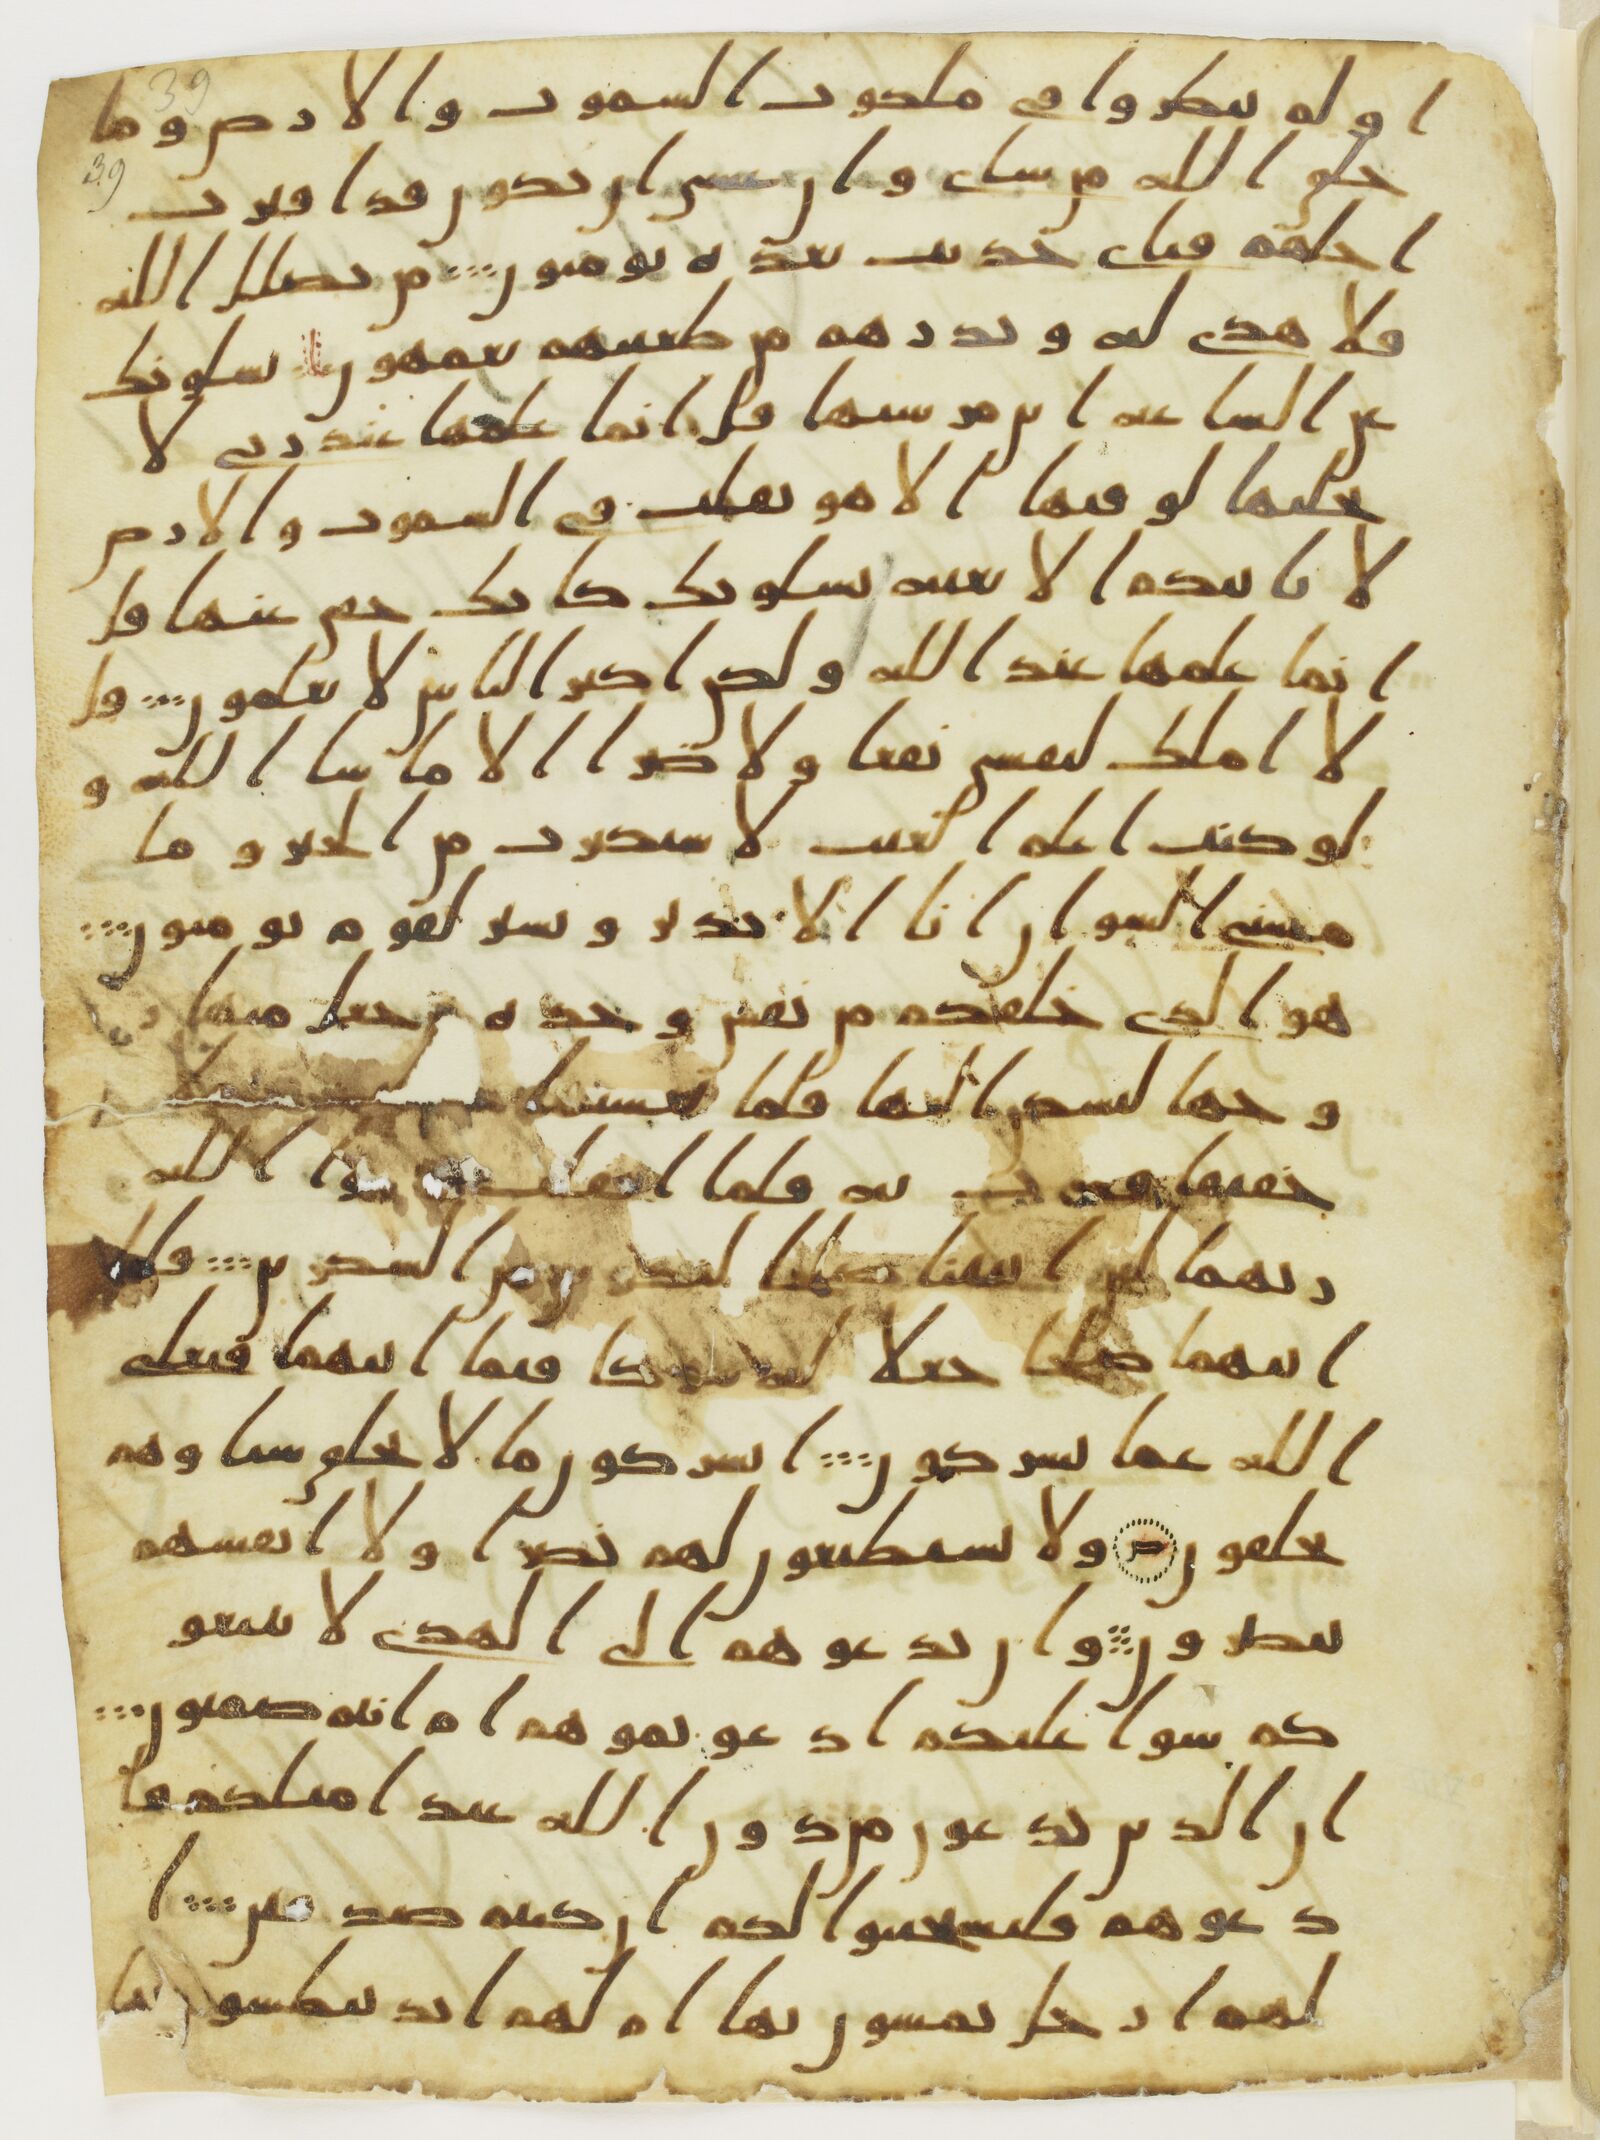 اولم ينظروا في ملكوت السموت والارض وما
خلق الله من شي وان عسى ان يكون قد اقترب
اجلهم فباي حديث بعده يومنون من يضلل الله
فلا هدي له ونذرهم في طغينهم يعمهون يسلونك
عن الساعة اين مرسيها قل انما علمها عند ربي لا
يجليها لوقتها الا هو ثقلت في السموت والارض
لا تاتيكم الا بغتة يسلونك كانك حفي عنها قل
انما علمها عند الله ولكن اكثر الناس لا يعلمون قل
لا املك لنفسي نفعا ولا ضرا الا ما شا الله و
لو كنت اعلم الغيب لاستكثرت من الخير وما
مسني السو ان انا الا نذير وبشير لقوم يومنون
هو الذي خلقكم من نفس وحدة وجعل منها ز
وجها ليسكن اليها فلما تغشيها
خفيفا فمرت به فلما اثقلت دعوا الله
ربهما لين اتيتنا صلحا لنكونن من الشكرين فلما
اتيهما صلحا جعلا له شركا فيما اتيهما فتعلى
الله عما يشركون ايشركون ما لا يخلق شيا وهم
يخلقون ولا يستطيعون لهم نصرا ولا انفسهم
ينصرون وان تدعوهم الى الهدى لا يتبعو
كم سوا عليكم ادعوتموهم ام انتم صمتون
ان الذين تدعون من دون الله عبد امثلكم فا
دعوهم فليستجيبوا لكم ان كنتم صدقين ا
لهم ارجل يمشون بها ام لهم ايد يبطشون بها
39
39